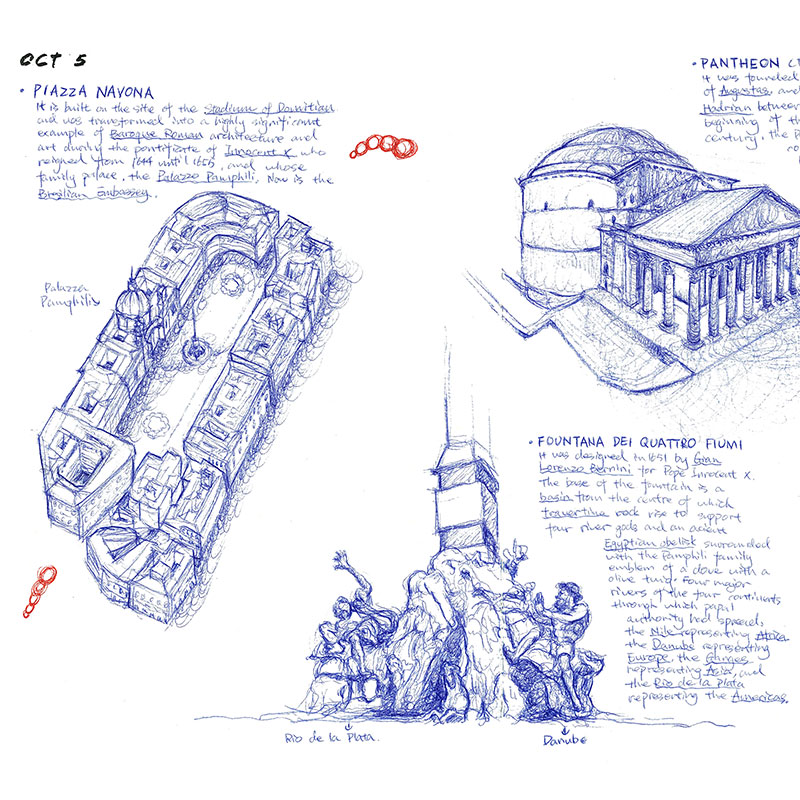 OCT 5
• PIAZZA NAVONA
It is built on the site of the Stadium of Domitian
and was transformed into a highly significant
example of Baroque Roman architecture and
art during the pontificate of Innocent X, who
reigned from 1644 until 1655, and whose
family palace, the Palazzo Pamphili, Now is the
Brasilian Embassey.
Palazzo
Pamphilis
• PANTHEON
it was founded
of Augustas, and
Hadrian between
beginning of th
century, the
• FOUNTANA DEI QUATTRO FIUMI
it was designed in 1651 by Gian
Lorenzo Bernini for Pope Innocent X.
The base of the fountain is a
basin from the centre of which
travertine rock rise to support
four river gods and an acient
Egyptian obelisk surrounded
with the Pamphili family
emblem of a dove with a
olive twig. Four major
rivers of the four continents
through which papal
authority had spread,
the Nile representing Africa
the Danube representing
Europe, the Ganges
representing Asia, and
the Rio de la Plata
representing the Americas.
Rio de la Plata.
Danube